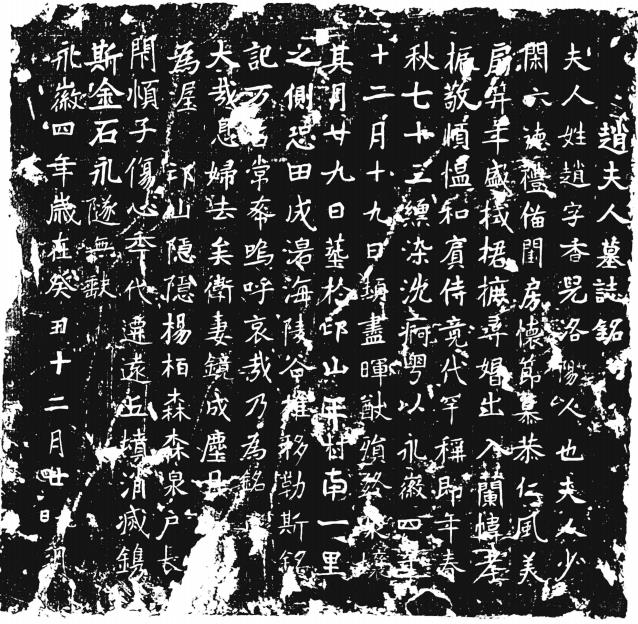 趙夫人墓誌銘
夫人姓趙字香兒洛陽人也夫人少
閑六德禮備閨房懷節慕恭仁風美
扇笄年盛栻栝摭尋婚出入闈幃孝
振敬慎愠和賓侍竟代罕稱即年春
秋七十三纏染沈痾粤以永徽四年
十二月十九日頓盡暉猷殯於
其月廿九日葬於邙山平村南一里
之側恐田成湯海陵谷推移勒斯銘
記万古常奉嗚呼哀哉乃為銘
大哉息婦去矣衛妻鏡成塵
為屋邙山隱隱楊柏森森泉戶長
閇慎子傷心年代遷遠丘墳消滅鎸
斯金石永隧無缺
永徽四年歲在癸丑十二月廿日